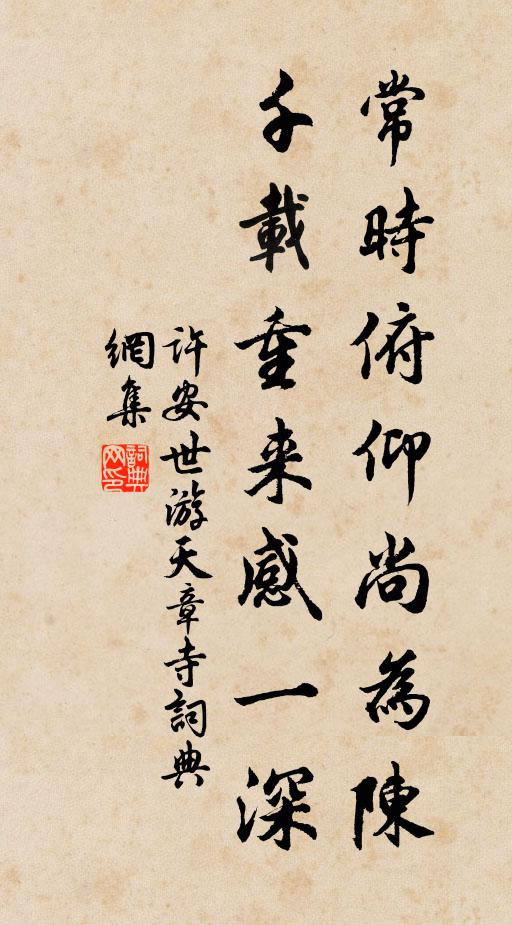 常時俯仰尚為陳
千載重来感一深
許安世游天章寺詞典
網集
詞典网印